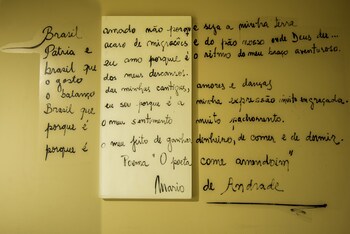 Brasil amado não porque seja a minha terra
Pátria é acaso de migrações e do pão nosso onde Deus der...
brasil que eu amo porque é o ritmo do meu braço aventuroso
o gosto dos meus descansos
o balanço das minhas cantigas, amores e danças
Brasil que eu sou porque é a minha expressão muito engraçada
porque é o meu sentimento muito pachorrento.
porque é o meu jeito de ganhar dinheiro, de comer e de dormir.
Poema "O poeta come amendoim"
Mario de Andrade